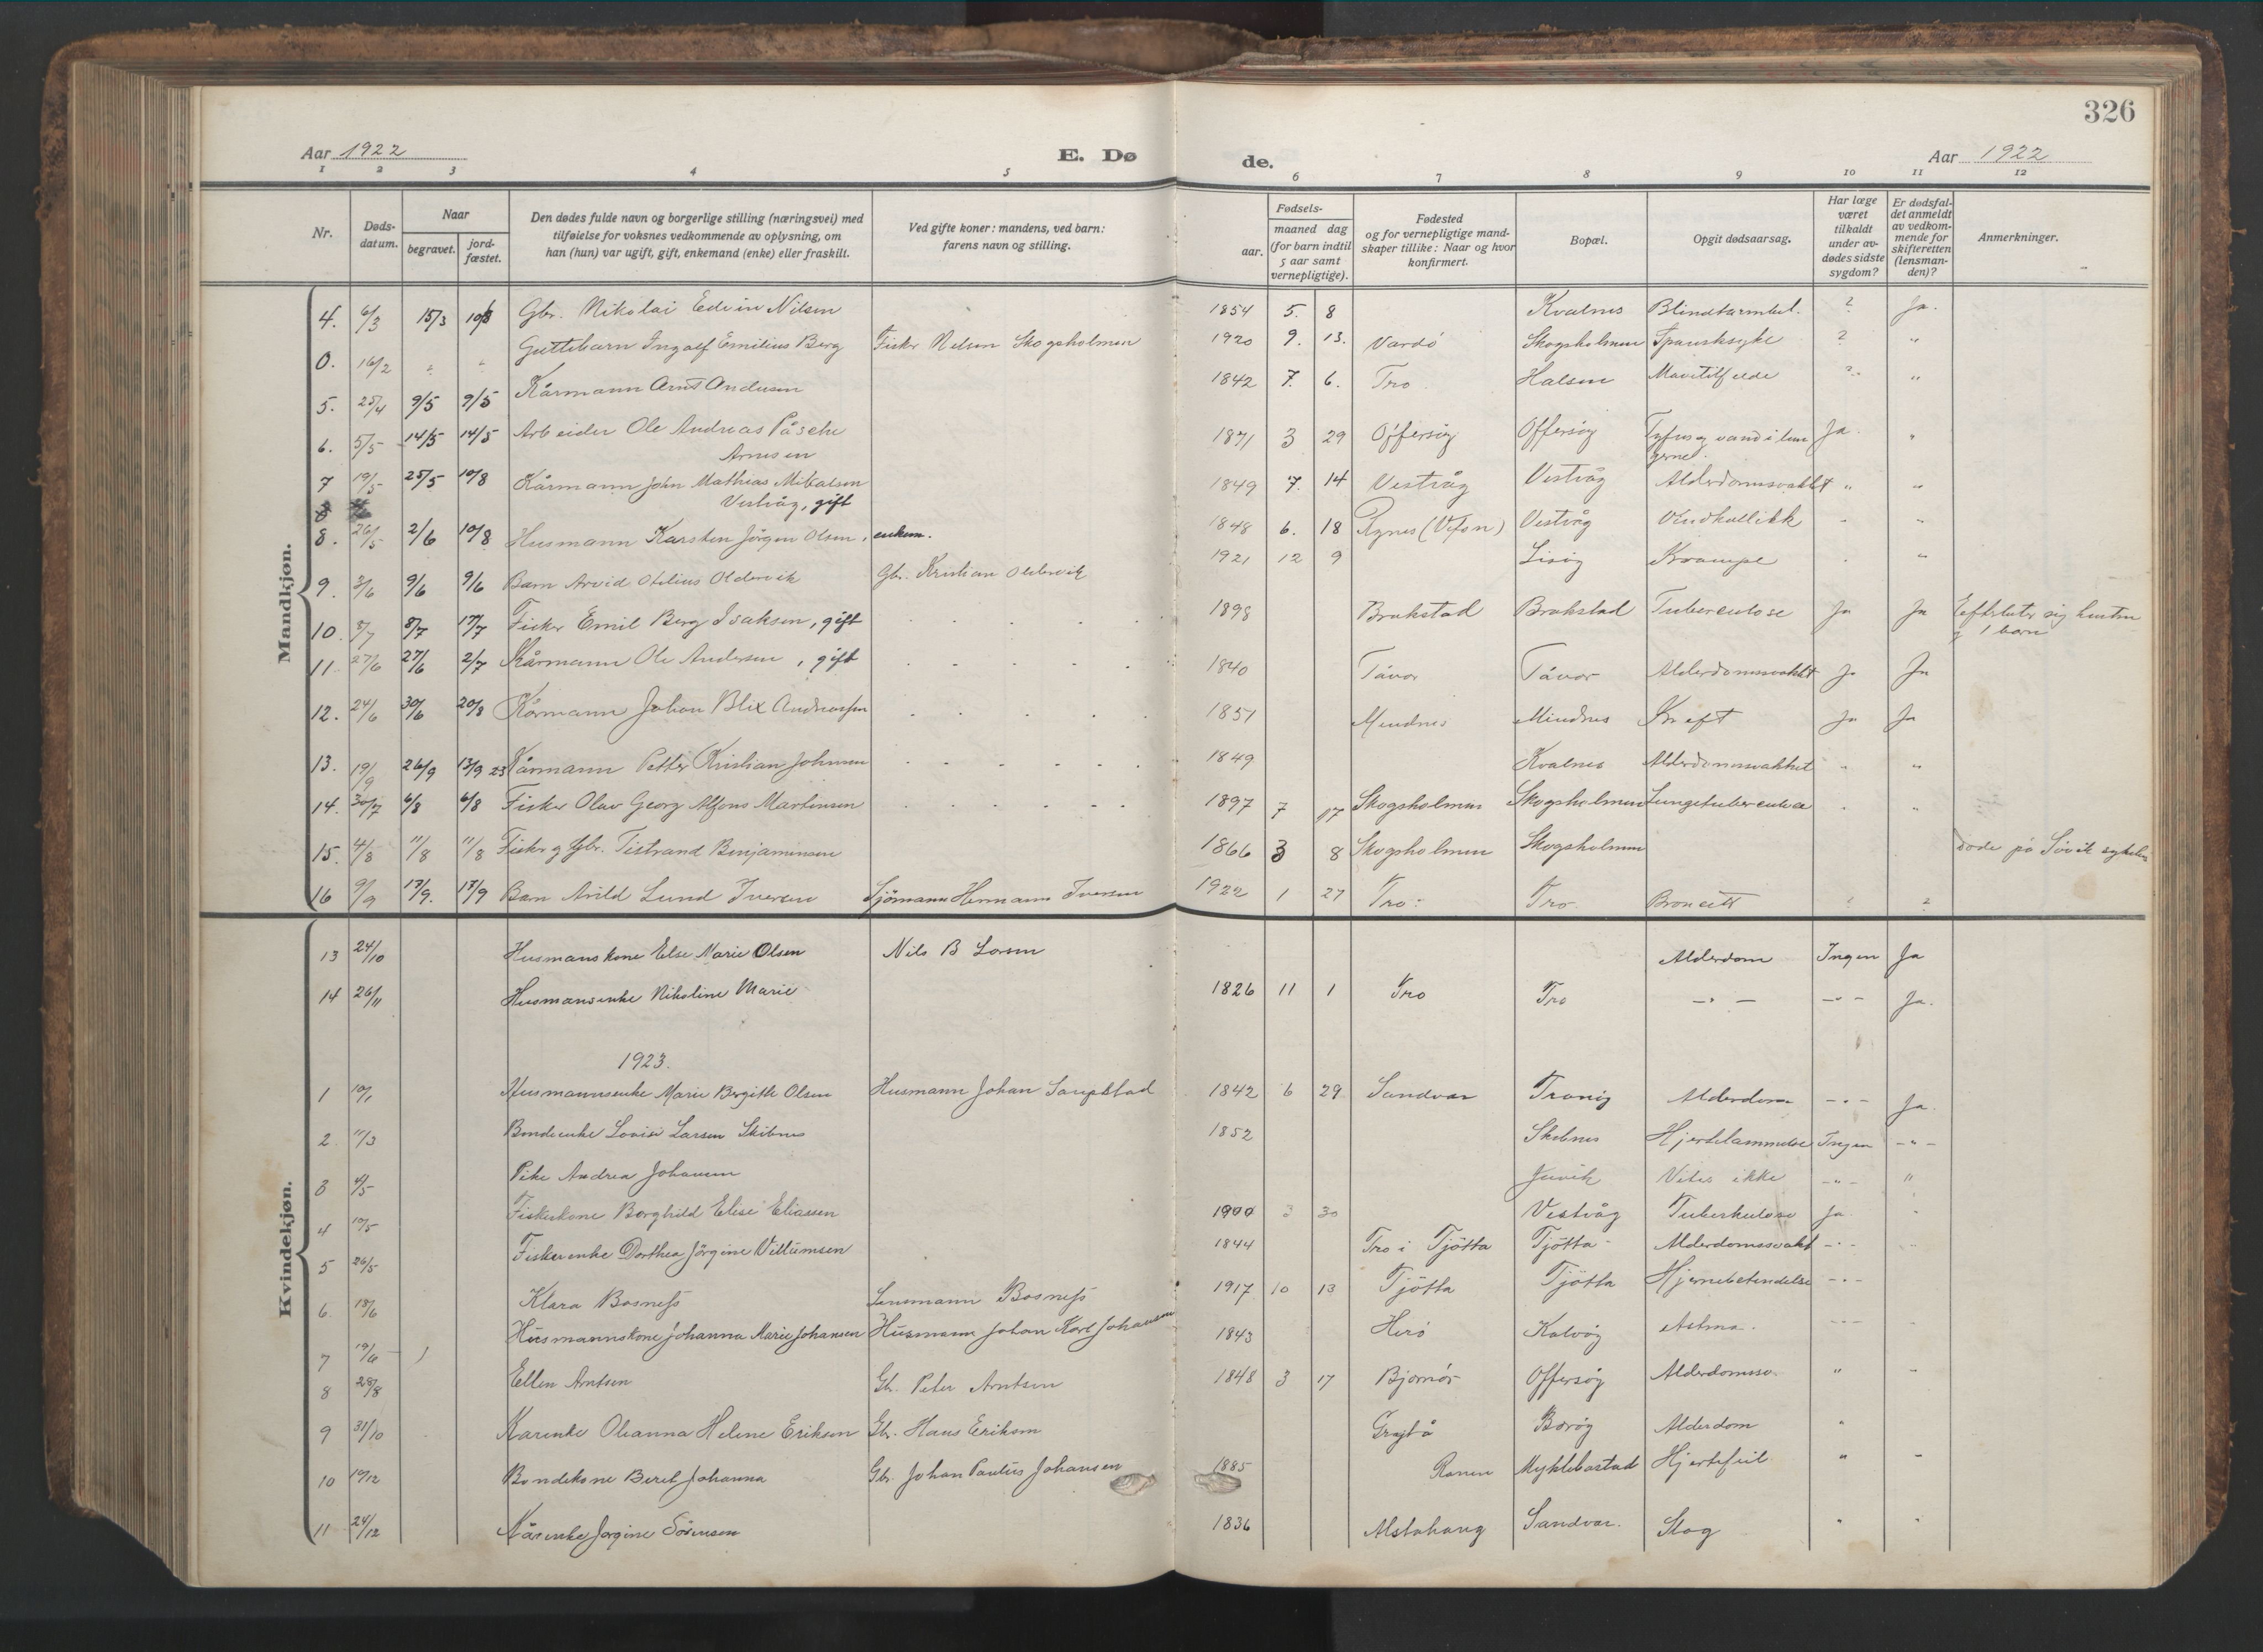 326
Aar 1922
E. Dø
de.
Aar 1922
1 2 3 4 5 6 7 8 9 10 11 12
Nr.
Døds-
datum.
Naar
begravet.
jord-
fæstet.
Den dødes fulde navn og borgerlige stilling (næringsvei) med
tilføielse for voksnes vedkommende av oplysning, om
han (hun) var ugift, gift, enkemand (enke) eller fraskilt.
Ved gifte koner: mandens, ved barn:
farens navn og stilling.
Fødsels-
aar.
maaned dag
(for barn indtil
5 aar samt
vernepligtige).
Fødested
og for vernepligtige mand-
skaper tillike: Naar og hvor
konfirmert.
Bopæl.
Opgit dødsaarsag.
Har læge
været
tilkaldt
under av-
dødes sidste
sygdom?
Er dødsfal-
det anmeldt
av vedkom-
mende for
skifteretten
(lensman-
den)?
Anmerkninger.
Mandkjøn.
4. 6/3 15/3 10/8 Gbr. Nikolai Edvin Nilsen 1854 5. 8 Kvalnes Blindtarmbet. ? Ja.
0. 16/2 " " Guttebarn Ingolf Emilius Berg Fisker Nelson Skogsholmen 1920 9. 13. Vardö Skogsholmen Spansksyke ? "
5. 25/4 9/5 9/5 Kårmann Arnt Andersen 1842 7. 6. Tro Halsen Mavetilfelde ? "
6. 5/5 14/5 14/5 Arbeider Ole Andreas Påsche 1871 3 29 Offersöy Offersöy Tyfus og vand i lun Ja. "
Arnesen
gerne.
7 19/5 25/5 10/8 Kårmann John Mathias Mikalsen 1849 7. 14 Vestvåg Vestvåg Alderdomssvakht " "
Vestvåg, gift
8. 26/5 2/6 10/8 Husmann Karsten Jörgen Olsen, enkem. 1848 6. 18 (Vefsn) Vestvåg Vindkolikk " "
9. 3/6 9/6 9/6 Barn Arvid Otelius Oldervik Gbr. Kristian Oldervik 1921 12 9 Lisöy Krampe . "
10. 8/7 8/7 17/7 Fisker Emil Berg Isaksen, gift 1898 Brakstad Brakstad Tuberculose Ja Ja Efterlater sig hustru
og 1 barn
11 27/6 27/6 2/7 Kårmann Ole Andersen, gift 1840 Távær Távær Alderdomssvakht Ja Ja
12. 24/6 30/6 20/8 Kårmann Johan Blix Andreassen 1851 Mindnes Mindnes Kreft Ja Ja
13. 19/9 26/9 13/9 23 Kårmann Petter Kristian Johnsen 1849 Kvalnes Alderdomssvakhet " "
14. 30/7 6/8 6/8 Fisker Olav Georg Alfons Martinsen 1897 7 17 Skogsholmen Skogsholmen Lungetuberculose . "
15. 4/8 11/8 11/8 Fisker og Gbr. Tistrand Benjaminsen 1866 3 8 Skogsholmen Skogsholmen döde på Sövik sykehus
16 9/9 17/9. 17/9 Barn Arild Lund Iversen Sjömann Hermann Iversen 1922 1 27 Tro. Tro. Broncitt ? ?
Kvindekjøn.
13 24/10 Husmanskone Else Marie Olsen Nils B Larsen Alderdom Ingen Ja
14 26/11 Husmansenke Nikoline Marie 1826 11 1 Tro Tro - " - - " - Ja.
1923.
1 10/1 Husmannsenke Marie Bergitte Olsen Husmann Johan Saupstad 1842 6 29 Sandvær Tranöy Alderdom - " - Ja.
2. 11/3 Bondeenke Lovise Larsen Skibnes 1852 Skibnes Hjertelammelse Ingen - " -
3 4/5 Pike Andrea Johansen Juvik Vites ikke - " - "
4 10/5 Fiskerkone Borghild Elise Eliassen 1900 3 30 Vestvåg Tuberkulose Ja. "
5 26/5 Fiskerenke Dorthea Jörgine Villumsen 1844 Tro i Tjötta Tjötta Alderdomssvakt - " - "
6 18/6 Klara Bosness Lensmann Bosness 1917 10 13 Tjötta Tjötta Hjernebetendelse - " -
7 19/6 Husmannskone Johanna Marie Johansen Husmann Johan Karl Johansen 1843 Herö Kalvöy Astma. - " - -
8 28/8 Ellen Arntsen Gbr. Peter Arntsen 1848 3 17 Bjørnör Offersöy Alderdomssv. " -
9 31/10 Kårenke Oleanna Helene Eriksen Gbr. Hans Eriksen Bæröy Alderdom "
10 10/12 Bondekone Beret Johanna Gbr. Johan Paulus Johansen 1885 Ranen Myklebostad Hjertefeil " -
11 24/12 Kårenke Jørgine Sörensen 1836 Alstahaug Sandvær. Slag " "